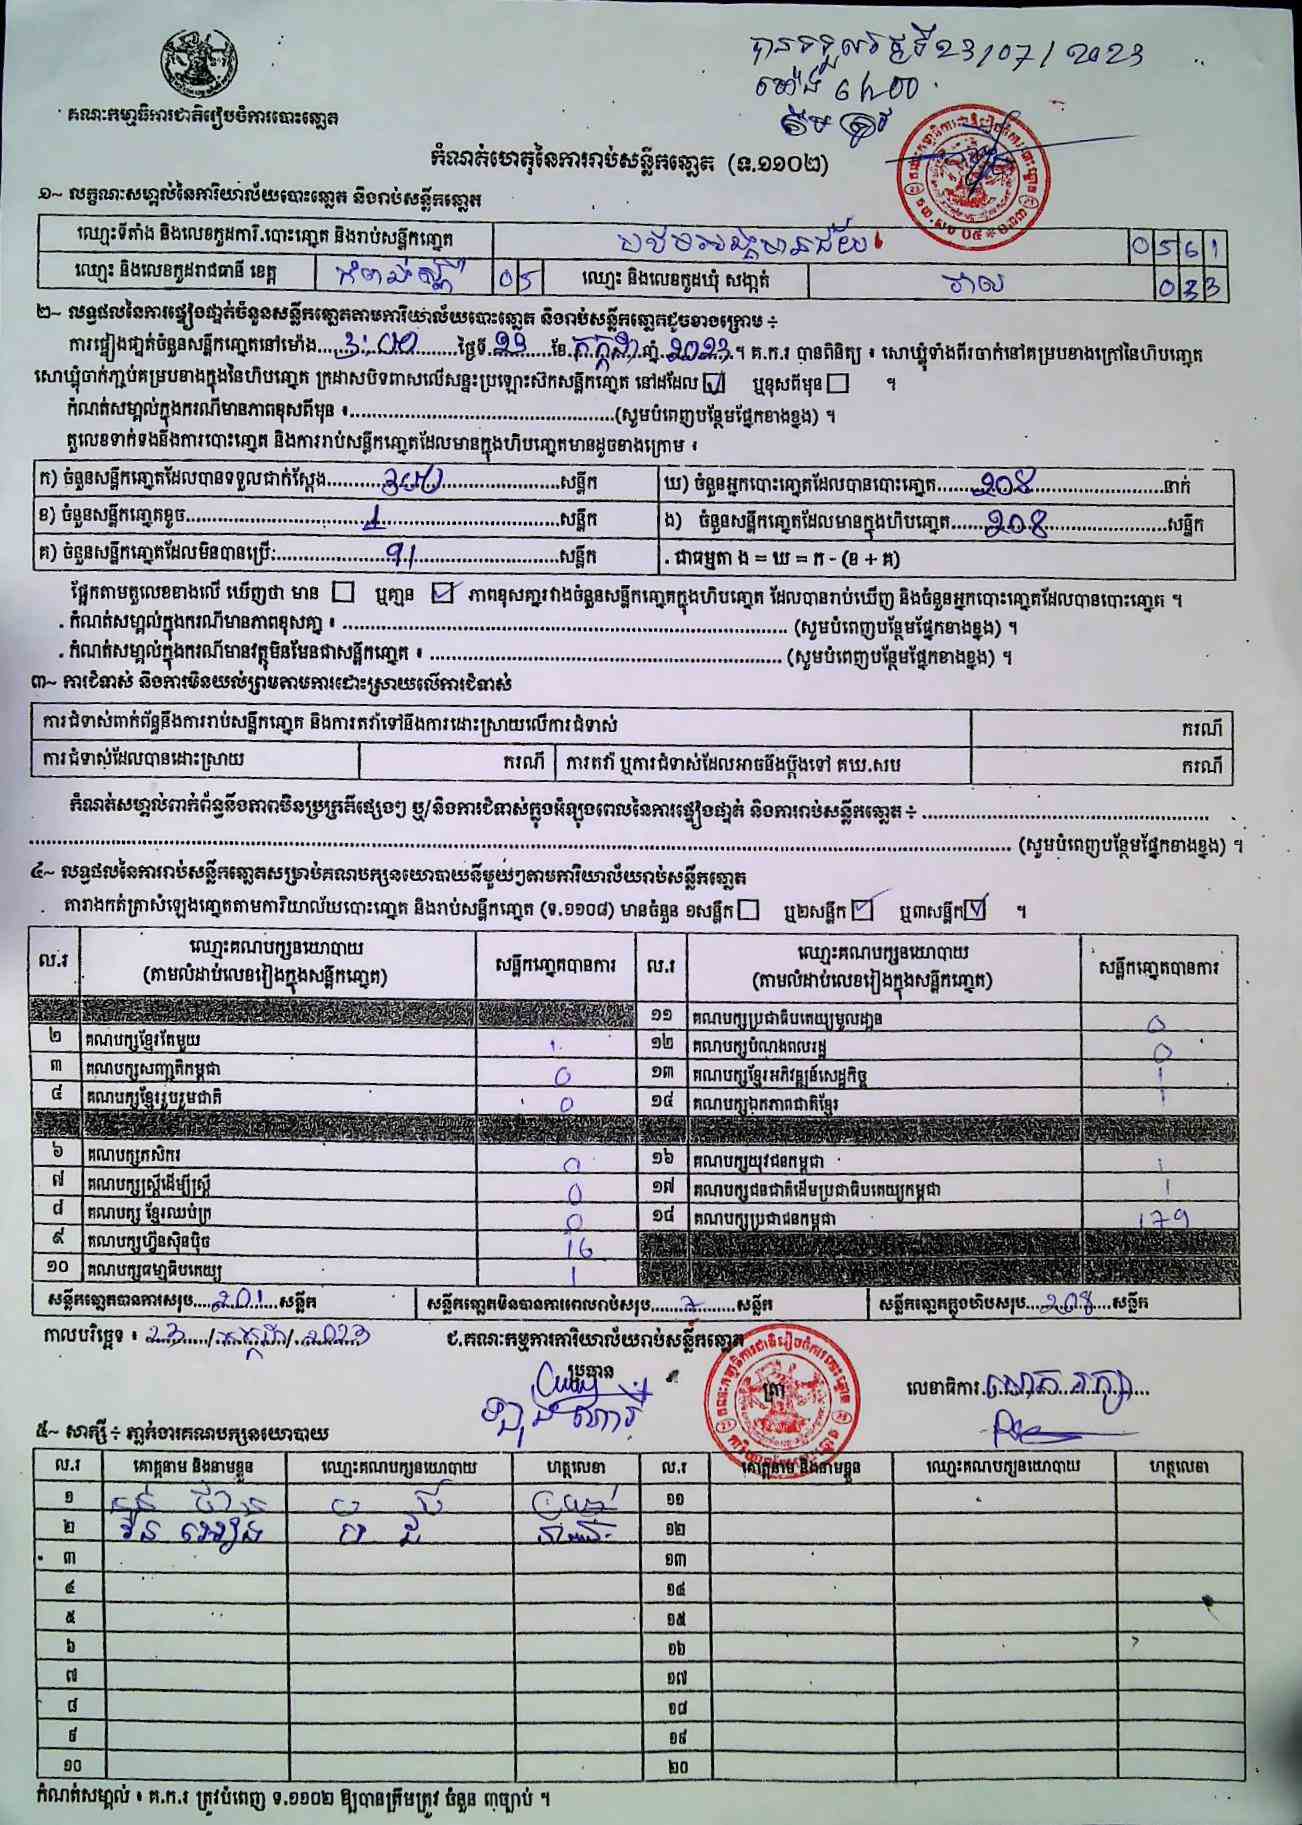 បានទទួលថ្ងៃទី23/07/2023
ម៉ោង 6h00
គណៈកម្មាធិការជាតិរៀបចំការបោះឆ្នោត
កំណត់ហេតុនៃការរាប់សន្លឹកឆ្នោត (ទ.១១០២)
១~ លក្ខណៈសម្គាល់នៃការិយាល័យបោះឆ្នោត និងរាប់សន្លឹកឆ្នោត
ឈ្មោះទីតាំង និងលេខកូដការិ.បោះឆ្នោត និងរាប់សន្លឹកឆ្នោត 0561
ឈ្មោះ និងលេខកូដរាជធានី ខេត្ត កំពង់ស្ពឺ 05 ឈ្មោះ និងលេខកូដឃុំ សង្កាត់ វាល 033
២~ លទ្ធផលនៃការផ្ទៀងផ្ទាត់ចំនួនសន្លឹកឆ្នោតតាមការិយាល័យបោះឆ្នោត និងរាប់សន្លឹកឆ្នោតដូចខាងក្រោម ៖
ការផ្ទៀងផ្ទាត់ចំនួនសន្លឹកឆ្នោតនៅម៉ោង 3:00 ថ្ងៃទី 23 ខែ កក្កដា ឆ្នាំ 2023 ។ គ.ក.រ បានពិនិត្យ ៖ សោឃ្លុំទាំងពីរចាក់នៅគម្របខាងក្រៅនៃហិបឆ្នោត
សោឃ្លុំចាក់ភ្ជាប់គម្របខាងក្នុងនៃហិបឆ្នោត ក្រដាសបិទពាសលើសន្ទះប្រឡោះស៊កសន្លឹកឆ្នោត នៅដដែល ☑ ឬខុសពីមុន ☐ ។
កំណត់សម្គាល់ក្នុងករណីមានភាពខុសពីមុន ៖ (សូមបំពេញបន្ថែមផ្នែកខាងខ្នង) ។
តួលេខទាក់ទងនឹងការបោះឆ្នោត និងការរាប់សន្លឹកឆ្នោតដែលមានក្នុងហិបឆ្នោតមានដូចខាងក្រោម ៖
ក) ចំនួនសន្លឹកឆ្នោតដែលបានទទួលជាក់ស្តែង 300 សន្លឹក ឃ) ចំនួនអ្នកបោះឆ្នោតដែលបានបោះឆ្នោត 208 នាក់
ខ) ចំនួនសន្លឹកឆ្នោតខូច 1 សន្លឹក ង) ចំនួនសន្លឹកឆ្នោតដែលមានក្នុងហិបឆ្នោត 208 សន្លឹក
គ) ចំនួនសន្លឹកឆ្នោតដែលមិនបានប្រើ: 91 សន្លឹក . ជាធម្មតា ង = ឃ = ក - (ខ + គ)
ផ្អែកតាមតួលេខខាងលើ ឃើញថា មាន ☐ ឬគ្មាន ☑ ភាពខុសគ្នារវាងចំនួនសន្លឹកឆ្នោតក្នុងហិបឆ្នោត ដែលបានរាប់ឃើញ និងចំនួនអ្នកបោះឆ្នោតដែលបានបោះឆ្នោត ។
. កំណត់សម្គាល់ក្នុងករណីមានភាពខុសគ្នា ៖ (សូមបំពេញបន្ថែមផ្នែកខាងខ្នង) ។
. កំណត់សម្គាល់ក្នុងករណីមានវត្ថុមិនមែនជាសន្លឹកឆ្នោត ៖ (សូមបំពេញបន្ថែមផ្នែកខាងខ្នង) ។
៣~ ការជំទាស់ និងការមិនយល់ព្រមតាមការដោះស្រាយលើការជំទាស់
ការជំទាស់ពាក់ព័ន្ធនឹងការរាប់សន្លឹកឆ្នោត និងការតវ៉ាទៅនឹងការដោះស្រាយលើការជំទាស់ ករណី
ការជំទាស់ដែលបានដោះស្រាយ ករណី ការតវ៉ា ឬការជំទាស់ដែលអាចនឹងប្តឹងទៅ គឃ.សប ករណី
កំណត់សម្គាល់ពាក់ព័ន្ធនឹងភាពមិនប្រក្រតីផ្សេងៗ ឬ/និងការជំទាស់ក្នុងអំឡុងពេលនៃការផ្ទៀងផ្ទាត់ និងការរាប់សន្លឹកឆ្នោត ៖
(សូមបំពេញបន្ថែមផ្នែកខាងខ្នង) ។
៤~ លទ្ធផលនៃការរាប់សន្លឹកឆ្នោតសម្រាប់គណបក្សនយោបាយនីមួយៗតាមការិយាល័យរាប់សន្លឹកឆ្នោត
តារាងកត់ត្រាសំឡេងឆ្នោតតាមការិយាល័យបោះឆ្នោត និងរាប់សន្លឹកឆ្នោត (ទ.១១០៨) មានចំនួន ១សន្លឹក ☐ ឬ២សន្លឹក ☑ ឬ៣សន្លឹក ☑ ។
ល.រ ឈ្មោះគណបក្សនយោបាយ (តាមលំដាប់លេខរៀងក្នុងសន្លឹកឆ្នោត) សន្លឹកឆ្នោតបានការ ល.រ ឈ្មោះគណបក្សនយោបាយ (តាមលំដាប់លេខរៀងក្នុងសន្លឹកឆ្នោត) សន្លឹកឆ្នោតបានការ
១១ គណបក្សប្រជាធិបតេយ្យមូលដ្ឋាន 0
២ គណបក្សខ្មែរតែមួយ 1 ១២ គណបក្សបំណងពលរដ្ឋ 0
៣ គណបក្សសញ្ជាតិកម្ពុជា 0 ១៣ គណបក្សខ្មែរអភិវឌ្ឍន៍សេដ្ឋកិច្ច 1
៤ គណបក្សខ្មែររួបរួមជាតិ 0 ១៤ គណបក្សឯកភាពជាតិខ្មែរ 1
៦ គណបក្សកសិករ 0 ១៦ គណបក្សយុវជនកម្ពុជា 1
៧ គណបក្សស្ត្រីដើម្បីស្ត្រី 0 ១៧ គណបក្សជនជាតិដើមប្រជាធិបតេយ្យកម្ពុជា 1
៨ គណបក្ស ខ្មែរឈប់ក្រ 0 ១៨ គណបក្សប្រជាជនកម្ពុជា 179
៩ គណបក្សហ៊្វុនស៊ិនប៉ិច 16
១០ គណបក្សធម្មាធិបតេយ្យ 1
សន្លឹកឆ្នោតបានការសរុប 201 សន្លឹក សន្លឹកឆ្នោតមិនបានការពេលរាប់សរុប 7 សន្លឹក សន្លឹកឆ្នោតក្នុងហិបសរុប 208 សន្លឹក
កាលបរិច្ឆេទ ៖ 23/កក្កដា/2023 ជ.គណៈកម្មការការិយាល័យរាប់សន្លឹកឆ្នោត
ប្រធាន ត្រា លេខាធិការ
៥~ សាក្សី ៖ ភ្នាក់ងារគណបក្សនយោបាយ
ល.រ គោត្តនាម និងនាមខ្លួន ឈ្មោះគណបក្សនយោបាយ ហត្ថលេខា ល.រ គោត្តនាម និងនាមខ្លួន ឈ្មោះគណបក្សនយោបាយ ហត្ថលេខា
១ ១១
២ ១២
៣ ១៣
៤ ១៤
៥ ១៥
៦ ១៦
៧ ១៧
៨ ១៨
៩ ១៩
១០ ២០
កំណត់សម្គាល់ ៖ គ.ក.រ ត្រូវបំពេញ ទ.១១០២ ឱ្យបានត្រឹមត្រូវ ចំនួន ៣ច្បាប់ ។